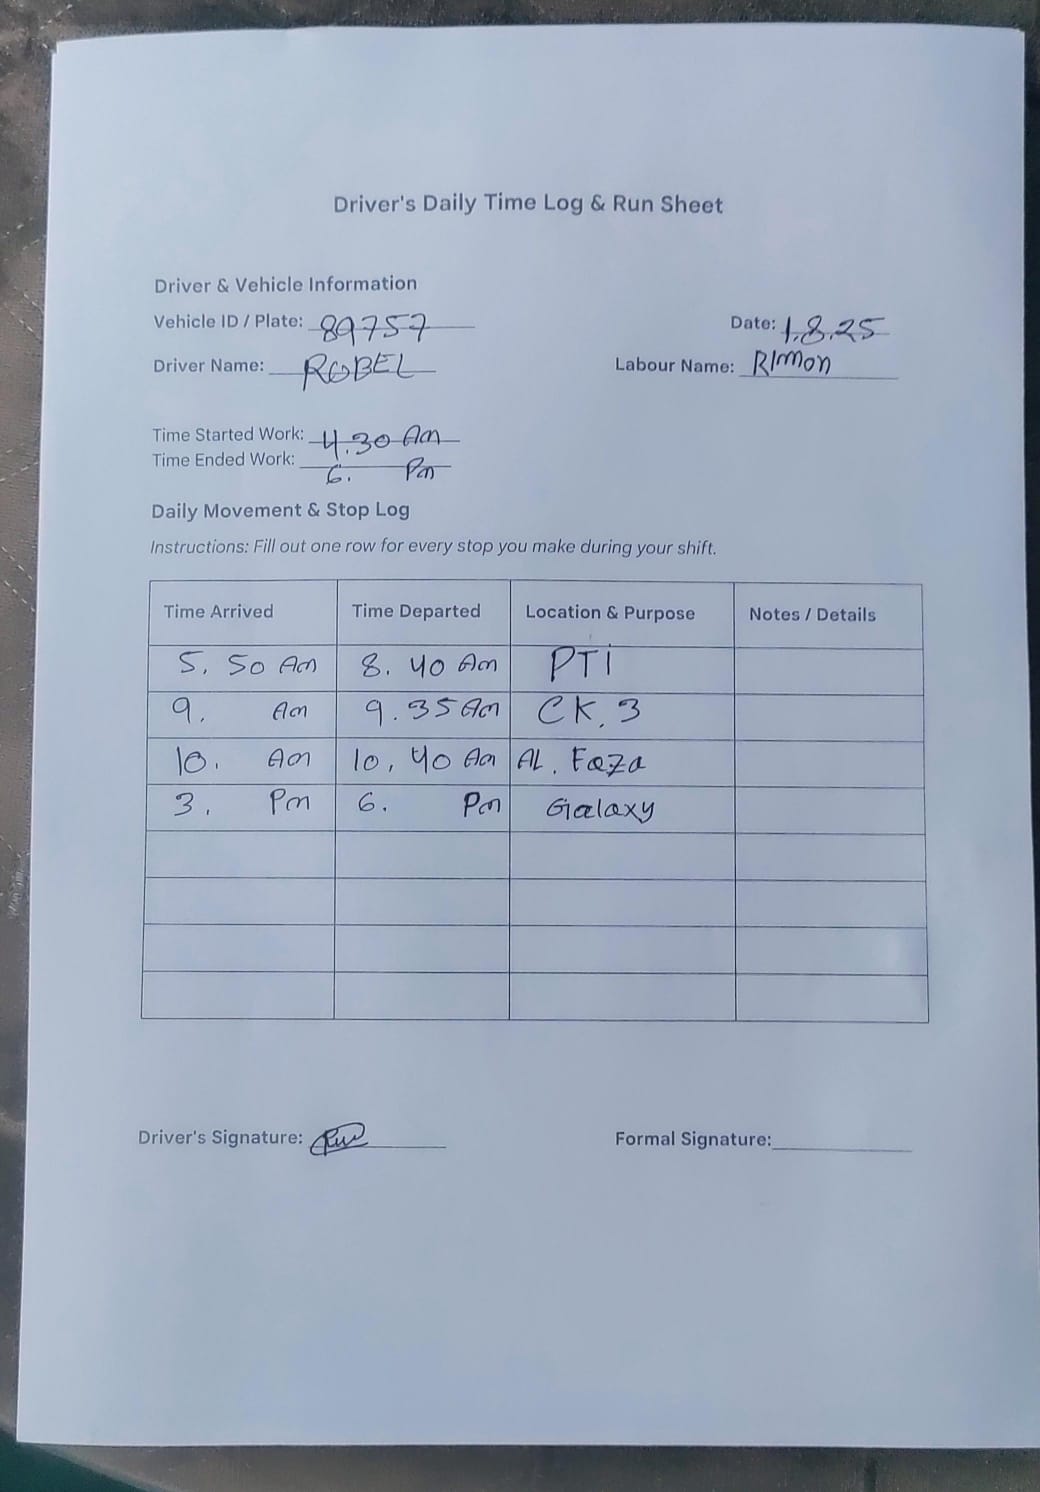 Driver's Daily Time Log & Run Sheet
Driver & Vehicle Information
Vehicle ID / Plate: 89757 Date: 1.8.25
Driver Name: ROBEL Labour Name: RIMON
Time Started Work: 4.30 Am
Time Ended Work: 6. Pm
Daily Movement & Stop Log
Instructions: Fill out one row for every stop you make during your shift.
Time Arrived Time Departed Location & Purpose Notes / Details
5.50 Am 8.40 Am PTi
9. Am 9.35 Am CK.3
10. Am 10,40 Am AL. Faza
3. Pm 6. Pm Galaxy
Driver's Signature: Formal Signature: